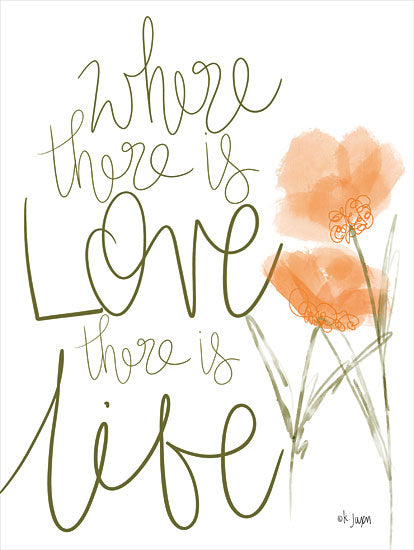 where
there is
LOVE
there is
life